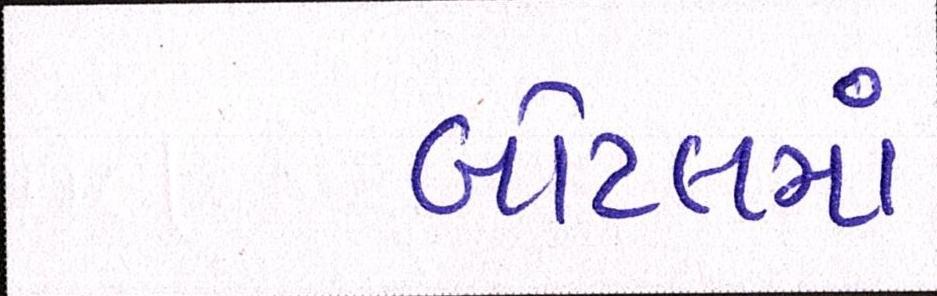 બોટલમાં